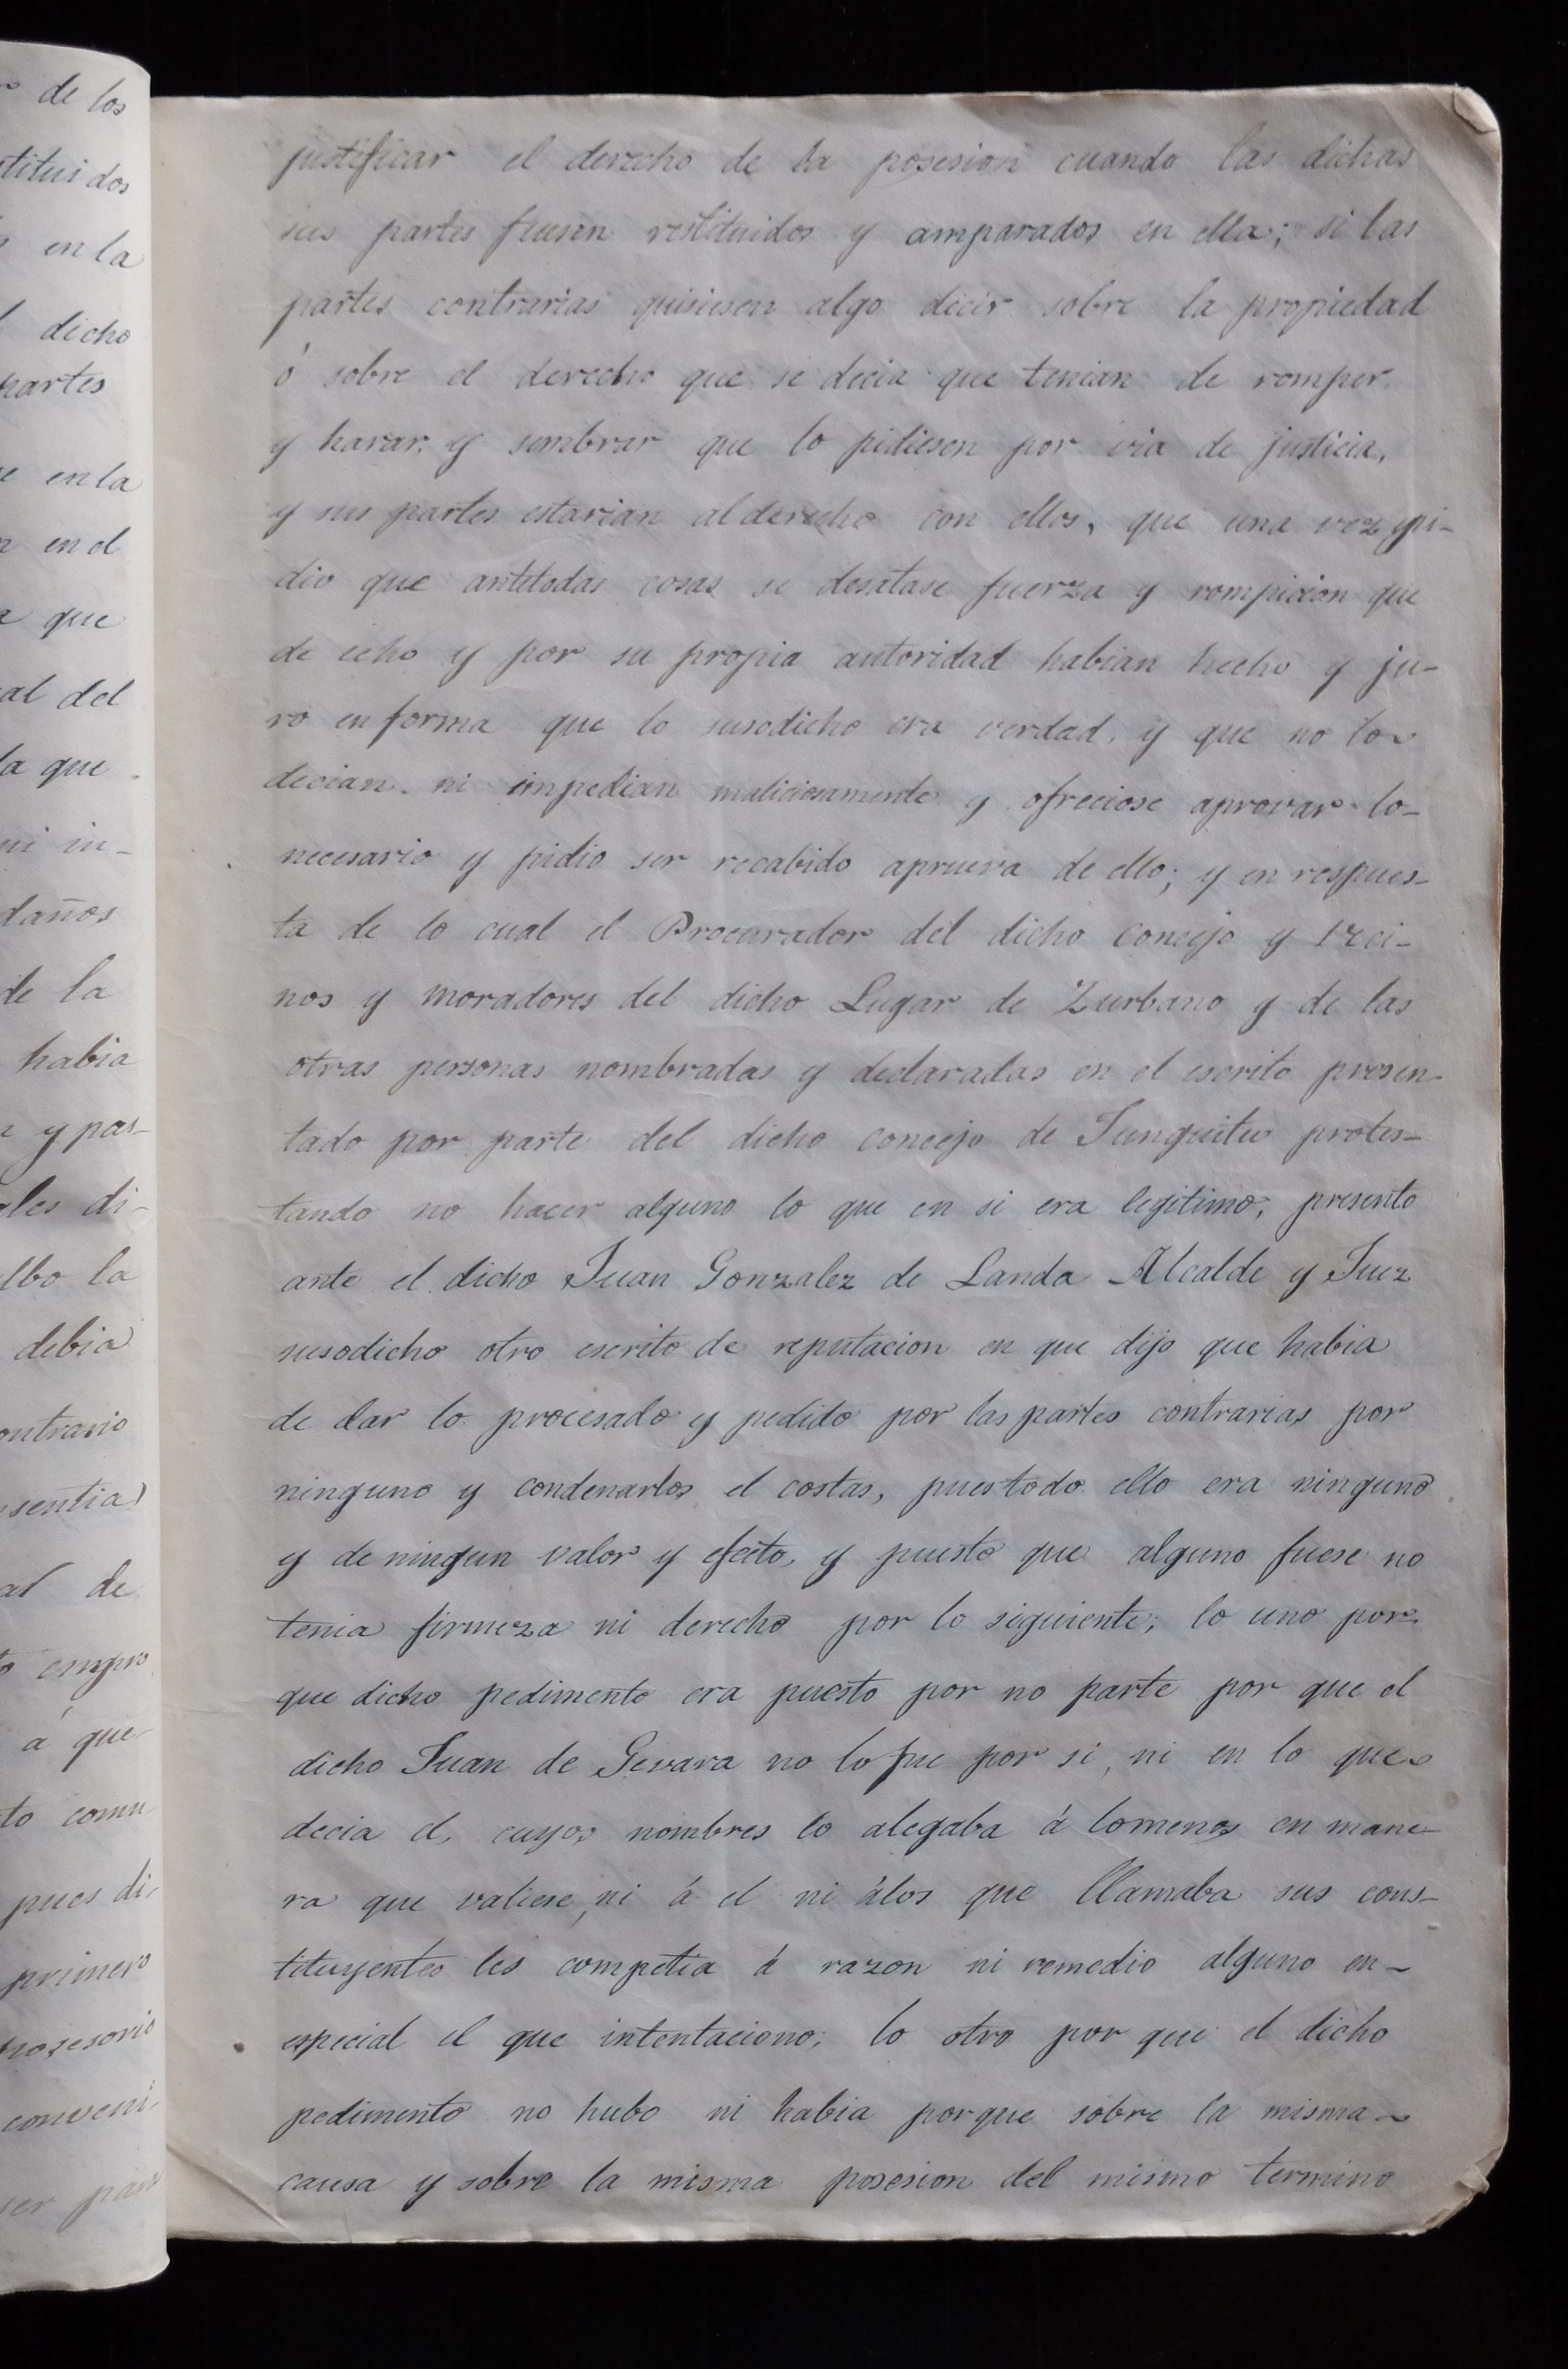 de los
tituidos
en la
dicho
partes
en la
en el
que
al del
la que
ni in-
daños
de la
habia
y pas-
ales di-
lbo la
debia
ontrario
sentia
al de
á que
to comu
pues di-
primero
posesorio
conveni-
justificar el derecho de la posesion cuando las dichas
sus partes fuesen restituidos y amparados en ella; si las
partes contrarias quisiesen algo decir sobre la propiedad
ó sobre el derecho que se decia que tenian de romper
y harar, y sembrar que lo pidiesen por via de justicia,
y sus partes estarian al derecho con ellos, que una vez pi-
dio que antetodas cosas se desatase fuerza y rompicion que
de echo y por su propia autoridad habian hecho y ju-
ro en forma que lo susodicho era verdad, y que no lo
decian ni impedian maliciosamente y ofreciose aprovar lo-
necesario y pidio ser recabido aprueva de ello; y en respues-
ta de lo cual el Procurador del dicho concejo y veci-
nos y moradores del dicho Lugar de Zurbano y de las
otras personas nombradas y declaradas en el escrito presen-
tado por parte del dicho concejo de Junguitu protes-
tando no hacer alguno lo que en si era legitimo; presento
ante el dicho Juan Gonzalez de Landa Alcalde y Juez
susodicho otro escrito de reputacion en que dijo que habia
de dar lo procesado y pedido por las partes contrarias por
ninguno y condenarlos el costas, pues todo ello era ninguno
y de ningun valor y efecto, y puesto que alguno fuese no
tenia firmeza ni derecho por lo siguiente; lo uno por-
que dicho pedimento era puesto por no parte por que el
dicho Juan de Gevara no lo fue por si, ni en lo que
decia el, cuyos nombres lo alegaba á lomenos en mane-
ra que valiese, ni á el ni álos que llamaba sus cons-
tituyentes les competia á razon ni remedio alguno en-
especial el que intentaciono; lo otro por que el dicho
pedimento no hubo ni habia porque sobre la misma-
causa y sobre la misma posesion del mismo termino